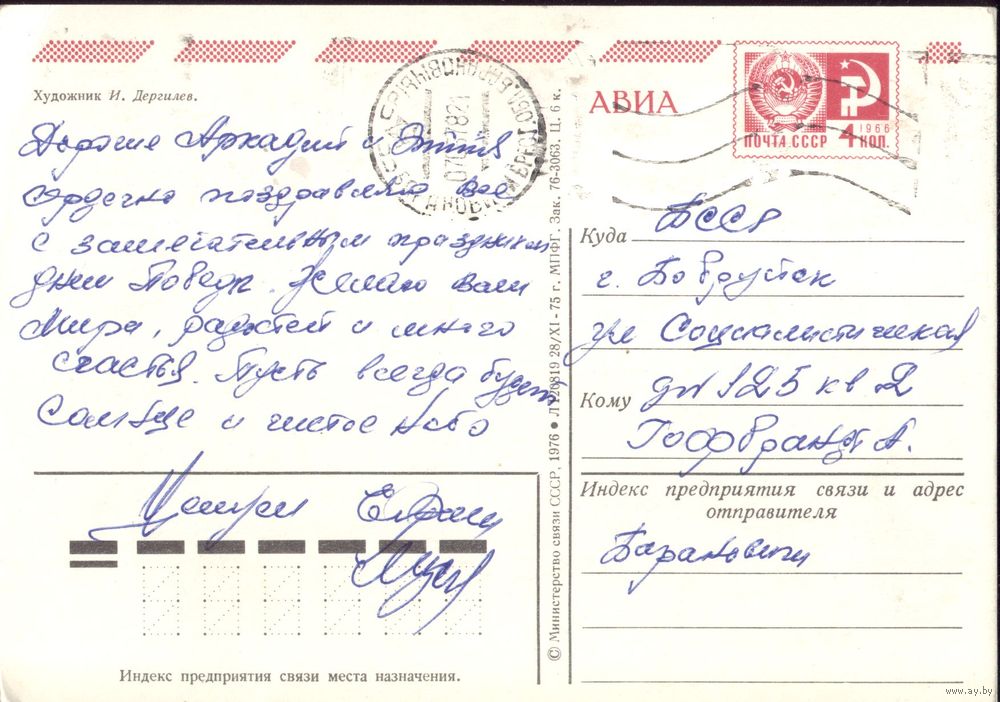 Художник И. Дергилев.
Дорогие Аркадий и
Сердечно поздравляю Вас
с замечательным праздником
днем Победы. Желаю Вам
мира, радостей и много
счастья. Пусть всегда будет
солнце и чистое небо
Индекс предприятия связи места назначения.
© Министерство связи СССР, 1976 ● 28/XI - 75 г. МПФГ. Зак. 76-3063. Ц. 6 к.
АВИА
1966
ПОЧТА СССР 4 КОП.
Куда БССР
г. Бобруйск
ул Социалистическая
Кому дм 125 кв 2
Гофбранд А.
Индекс предприятия связи и адрес
отправителя
Барановичи
www.ay.by